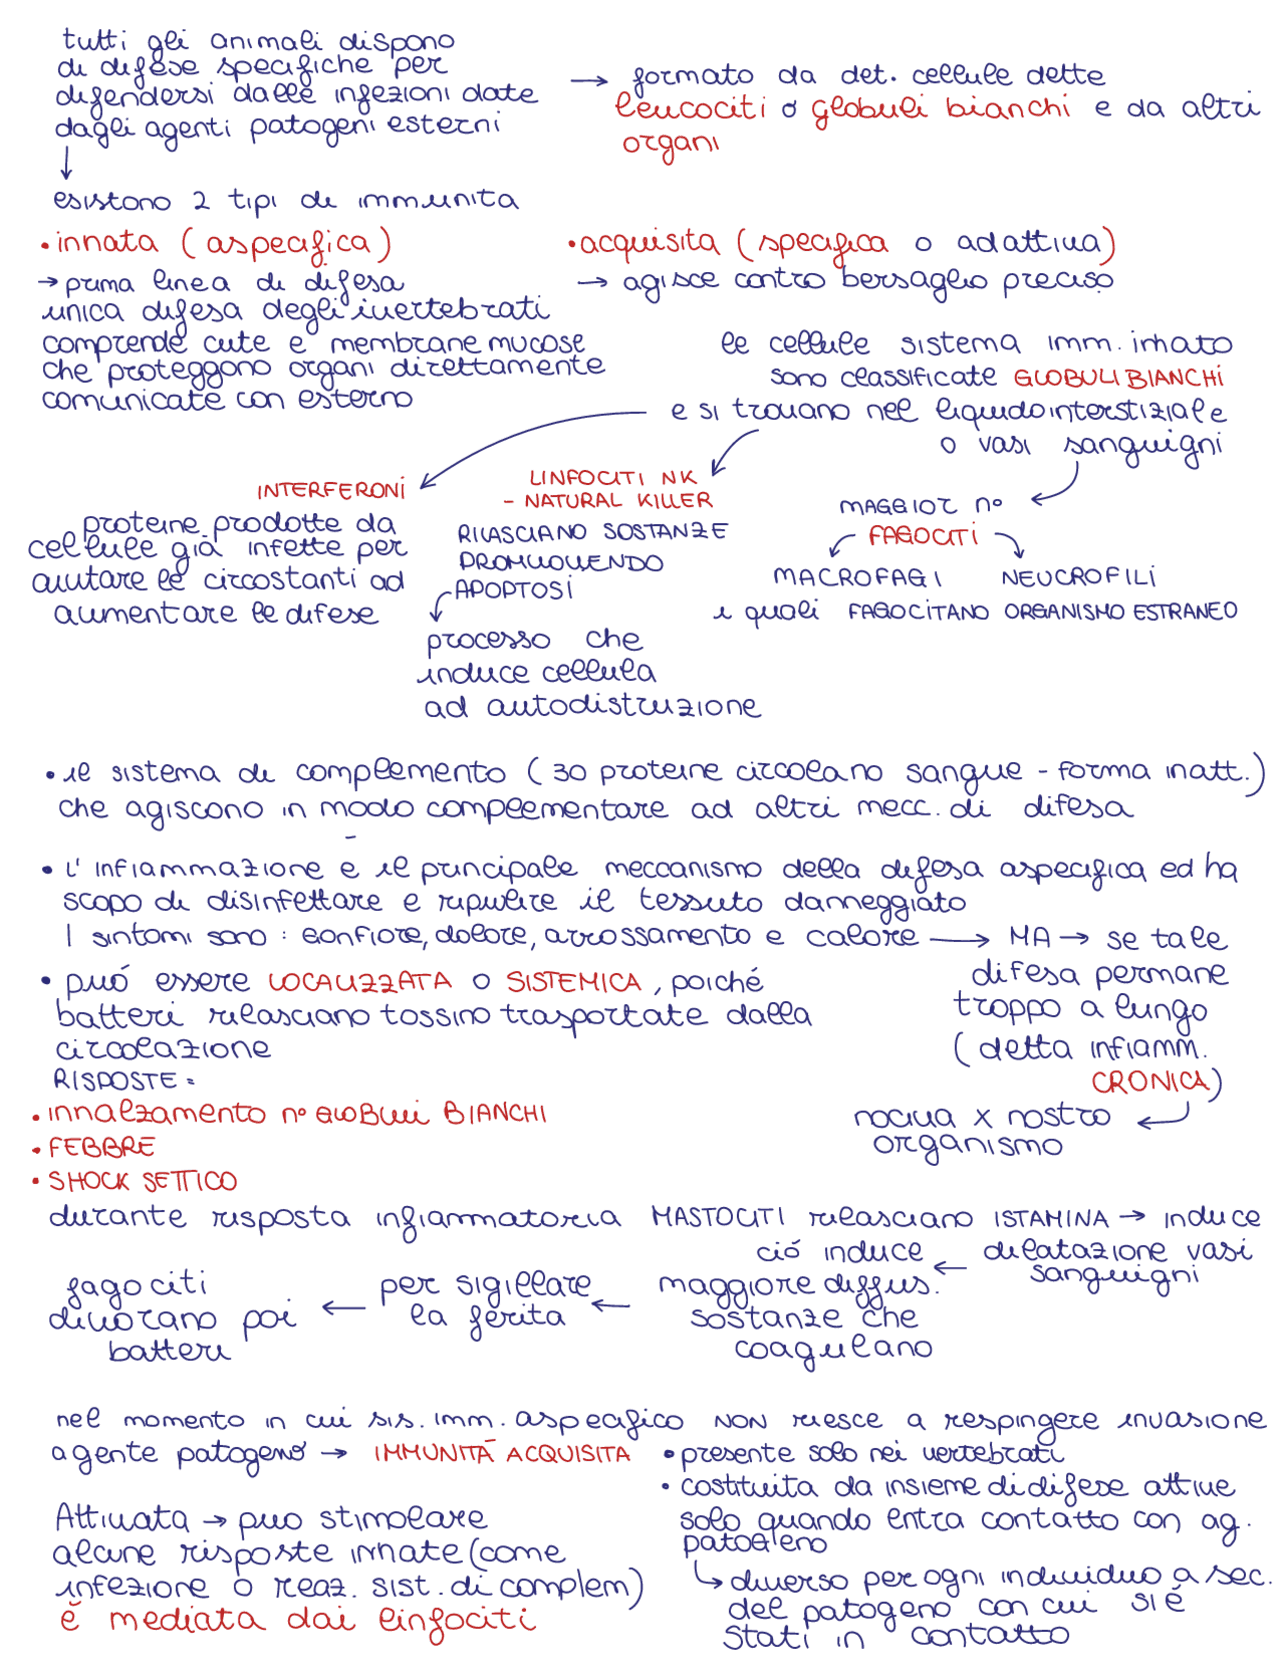 tutti gli animali dispono
di difese specifiche per
difendersi dalle infezioni date
dagli agenti patogeni esterni
→ formato da det. cellule dette
leucociti o globuli bianchi e da altri
organi
↓
esistono 2 tipi di immunita
• innata (aspecifica)
→ prima linea di difesa
unica difesa degli invertebrati
comprende cute e membrane mucose
che proteggono organi direttamente
comunicate con esterno
• acquisita (specifica o adattiva)
→ agisce contro bersaglio preciso
le cellule sistema imm. innato
sono classificate GLOBULI BIANCHI
e si trovano nel liquido interstiziale
o vasi sanguigni
INTERFERONI
proteine prodotte da
cellule già infette per
aiutare le circostanti ad
aumentare le difese
LINFOCITI NK
- NATURAL KILLER
RILASCIANO SOSTANZE
PROMUOVENDO
APOPTOSI
processo che
induce cellula
ad autodistruzione
MAGGIOR n°
FAGOCITI
MACROFAGI NEUCROFILI
i quali FAGOCITANO ORGANISMO ESTRANEO
• il sistema di complemento (30 proteine circolano sangue - forma inatt.)
che agiscono in modo complementare ad altri mecc. di difesa
• L' infiammazione è il principale meccanismo della difesa aspecifica ed ha
scopo di disinfettare e ripulire il tessuto danneggiato
I sintomi sono: gonfiore, dolore, arrossamento e calore → MA → se tale
difesa permane
troppo a lungo
(detta infiamm.
CRONICA)
nociva x nostro
organismo
• puó essere LOCALIZZATA o SISTEMICA, poiché
batteri rilasciano tossino trasportate dalla
circolazione
RISPOSTE:
• innalzamento n° GLOBULI BIANCHI
• FEBBRE
• SHOCK SETTICO
durante risposta infiammatoria MASTOCITI rilasciano ISTAMINA → induce
dilatazione vasi
sanguigni
← ció induce
maggiore diffus.
sostanze che
coagulano
← per sigillare
la ferita
← fagociti
divorano poi
batteri
nel momento in cui sis. imm. aspecifico NON riesce a respingere invasione
agente patogeno → IMMUNITÀ ACQUISITA
• presente solo nei vertebrati
• costituita da insieme di difese attive
solo quando entra contatto con ag.
patogeno
↳ diverso per ogni individuo a sec.
del patogeno con cui si é
stati in contatto
Attivata → puo stimolare
alcune risposte innate (come
infezione o reaz. sist. di complem)
è mediata dai linfociti